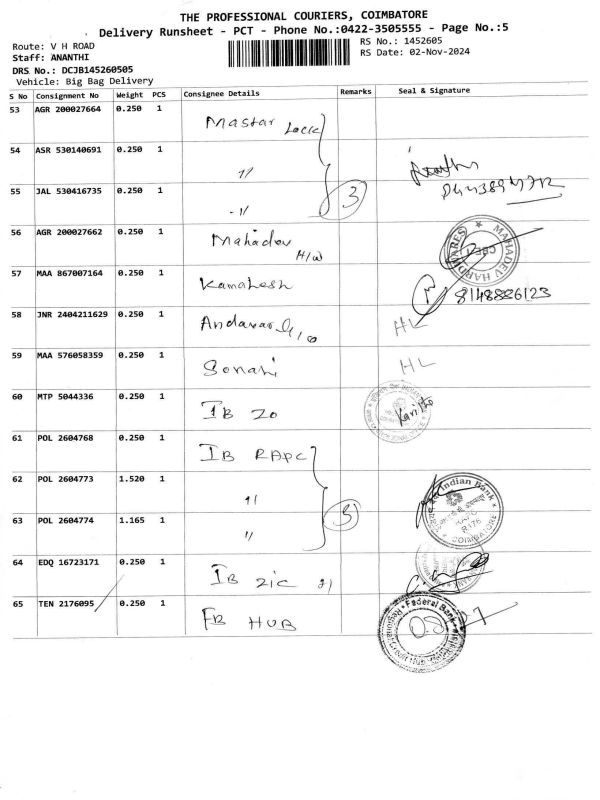 THE PROFESSIONAL COURIERS, COIMBATORE
Delivery Runsheet - PCT - Phone No.:0422-3505555 - Page No.:5
Route: V H ROAD
RS No.: 1452605
Staff: ANANTHI
RS Date: 02-Nov-2024
DRS No.: DCJB145260505
Vehicle: Big Bag Delivery
S No Consignment No Weight PCS Consignee Details Remarks Seal & Signature
53 AGR 200027664 0.250 1 Mastar Lock
54 ASR 530140691 0.250 1 "
55 JAL 530416735 0.250 1 -" 3
56 AGR 200027662 0.250 1 Mahadev H/w MAHADEV HARDWARES
57 MAA 867007164 0.250 1 Kamahesh 8148886123
58 JNR 2404211629 0.250 1 Andavar HL
59 MAA 576058359 0.250 1 Sonahi HL
60 MTP 5044336 0.250 1 IB ZO
61 POL 2604768 0.250 1 IB RAPC
62 POL 2604773 1.520 1 " Indian Bank
63 POL 2604774 1.165 1 " 3 COIMBATORE
64 EDQ 16723171 0.250 1 IB ZIC
65 TEN 2176095 0.250 1 FB HUB Federal Bank